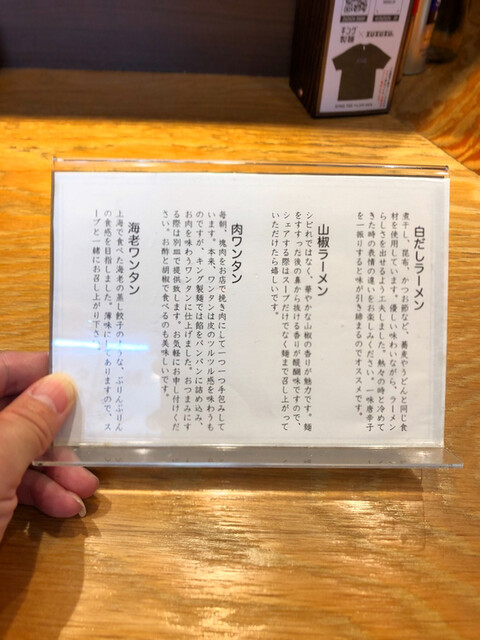 白だしラーメン
煮干し、昆布、かつお節など、蕎麦やうどんと同じ食
材を使用しています。優しい味わいながら、ラーメン
らしさを出せるよう工夫しました。熱々の時と冷めて
きた時の表情の違いをお楽しみください。一味唐辛子
を一振りすると味が引き締まるのでオススメです。
山椒ラーメン
シビれではなく、華やかな山椒の香りが魅力です。麺
をすすった後の鼻から抜ける香りが醍醐味ですので、
シェアする際はスープだけでなく麺まで召し上がって
いただけたら嬉しいです。
肉ワンタン
毎朝、塊肉をお店で挽き肉にして一つ一つ手包みして
います。本来、ワンタンは皮のツルツル感を味わうも
のですが、キング製麺では餡をパンパンに詰め込み、
お肉を味わうワンタンに仕上げました。おつまみにす
る際は別皿で提供致します。お気軽にお申し付けくだ
さい。お酢と胡椒で食べるのも美味しいです。
海老ワンタン
上海で食べた海老の蒸し餃子のような、ぷりんぷりん
の食感を目指しました。薄味にしてありますので、ス
ープと一緒にお召し上がり下さい。
キング
製麺
×